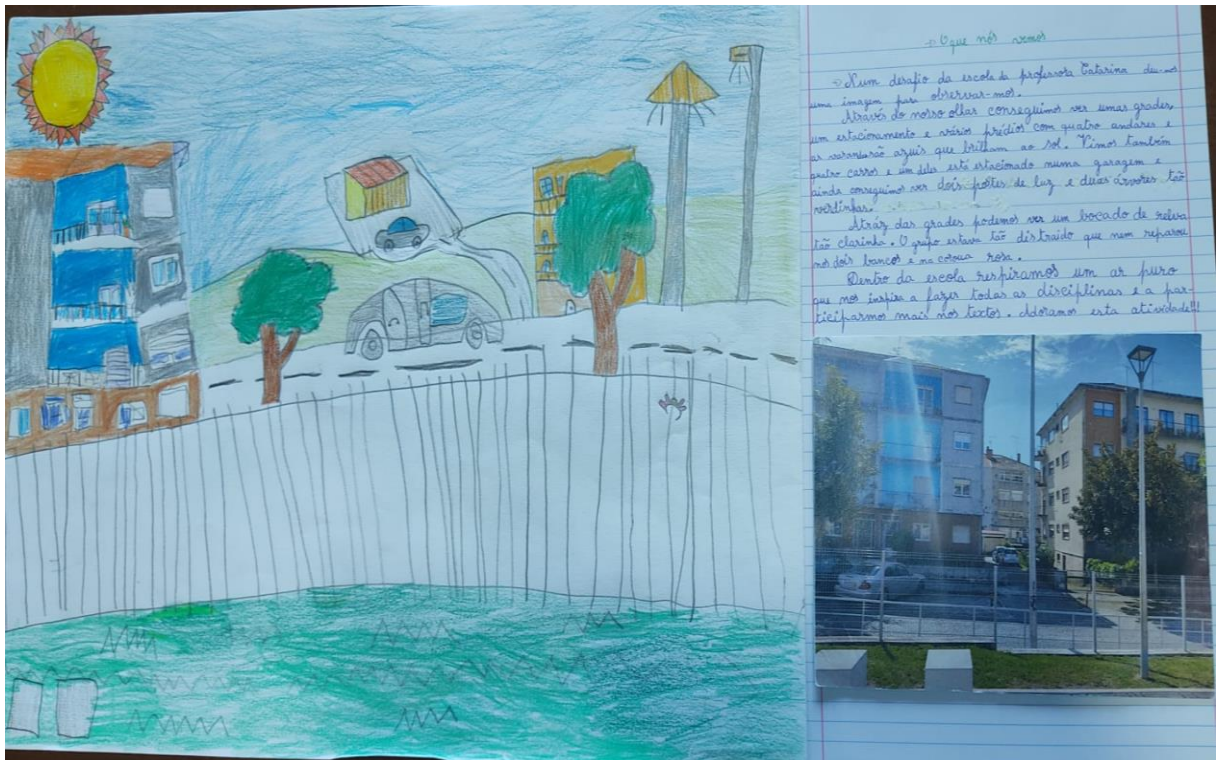 → O que nós vemos
→ Num desafio da escola da professora Catarina deu-nos
uma imagem para observar-mos.
Através do nosso olhar conseguimos ver umas grades,
um estacionamento e vários prédios com quatro andares e
as varandas são azuis que brilham ao sol. Vimos também
quatro carros e um deles está estacionado numa garagem e
ainda conseguimos ver dois postes de luz e duas árvores tão
verdinhas.
Atráz das grades podemos ver um bocado de relva
tão clarinha. O grupo estava tão distraido que nem reparou
nos dois bancos e na coroa rosa.
Dentro da escola respiramos um ar puro
que nos inspira a fazer todas as disciplinas e a par-
ticiparmos mais nos textos. Adoramos esta atividade!!!